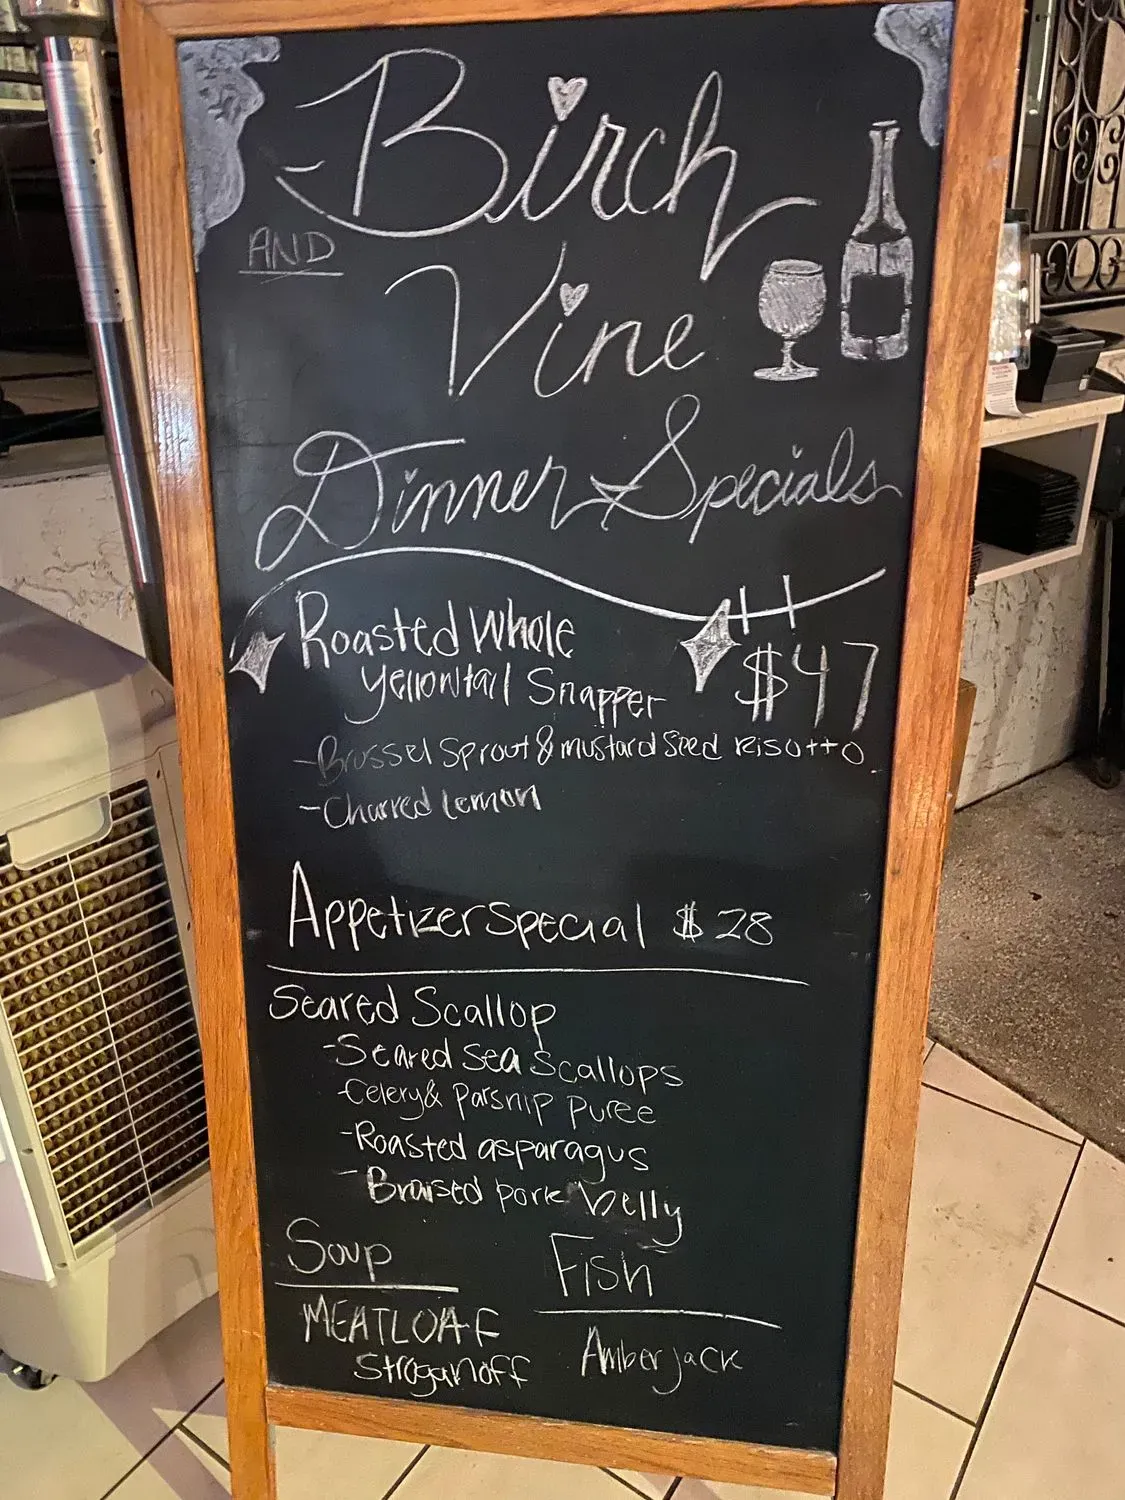 Birch
AND
Vine
Dinner Specials
Roasted Whole
Yellowtail Snapper
$47
-Brussel Sprout & mustard Seed Risotto
-Charred Lemon
Appetizer Special $28
Seared Scallop
-Seared Sea Scallops
-Celery & Parsnip Puree
-Roasted asparagus
-Braised pork belly
Soup
MEATLOAF
Stroganoff
Fish
Amberjack